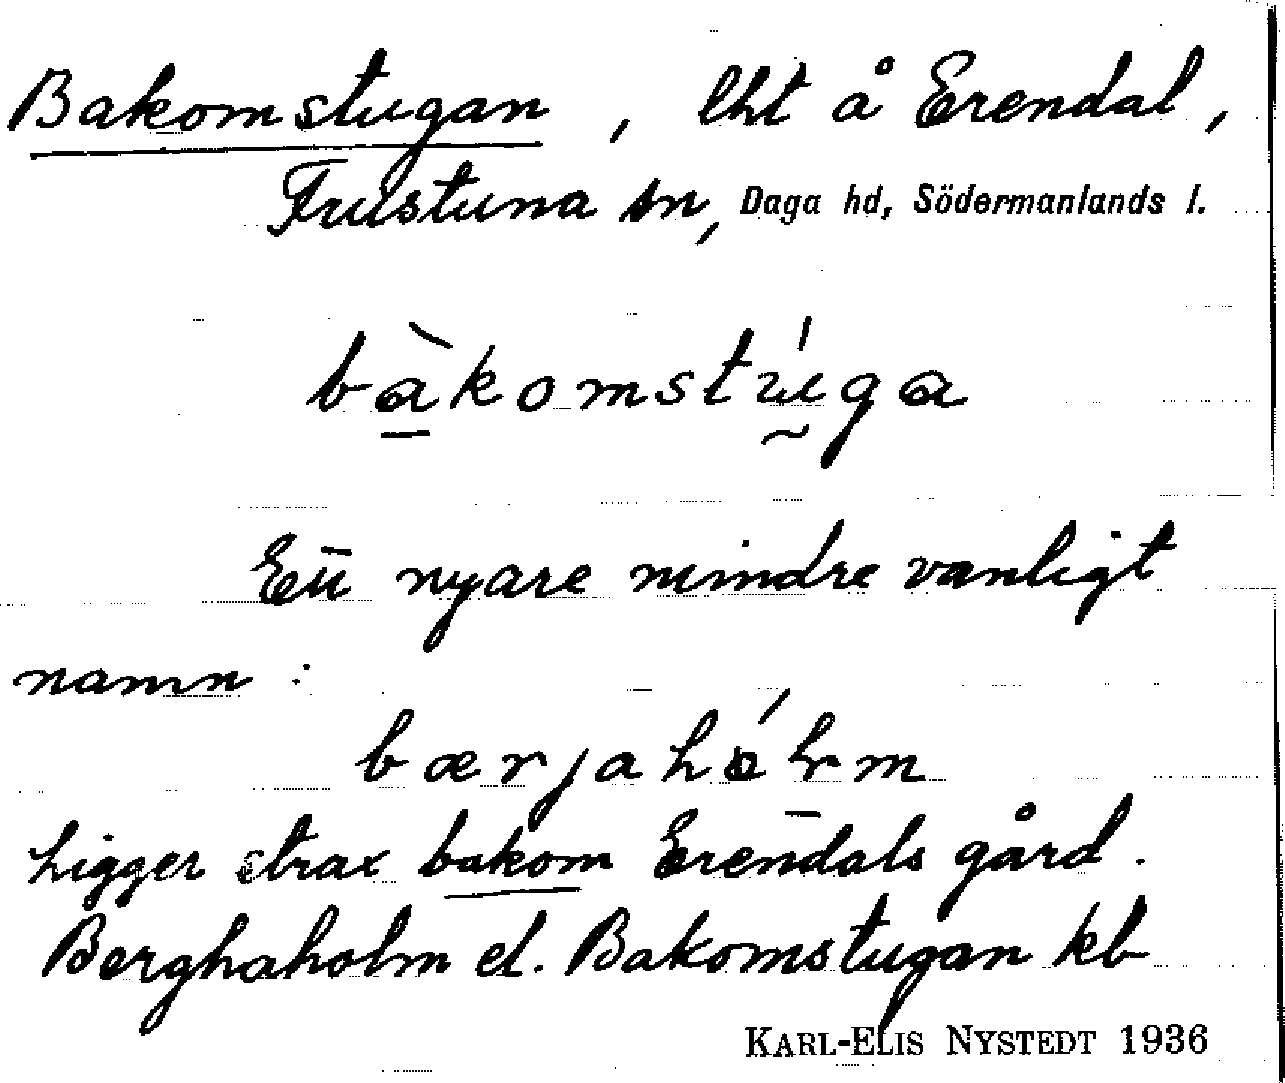 Bakomstugan, lht å Erendal,
Frustuna sn, Daga hd, Södermanlands l.
bàkomstúga
Ett nyare mindre vanligt
namn :
bærjahólm
Ligger strax bakom Erendals gård.
Berghaholm el. Bakomstugan kb
KARL-ELIS NYSTEDT 1936